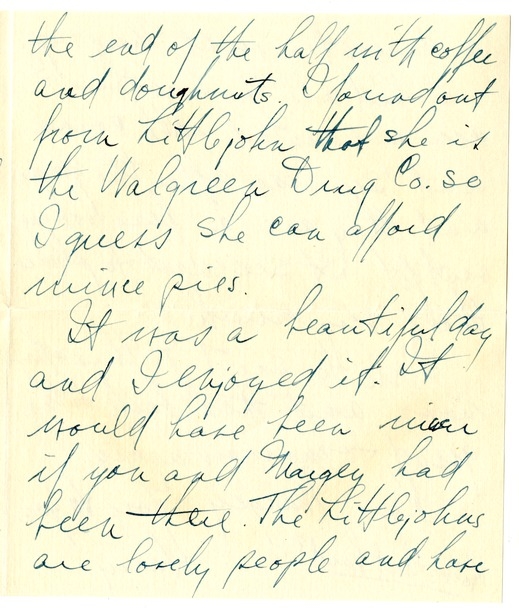 the end of the hall with coffee
and doughnuts. I found out
from Littlejohn that she is
the Walgreen Drug Co. so
I guess she can afford
mince pies.
It was a beautiful day
and I enjoyed it. It
would have been nicer
if you and Margey had
been there. The Littlejohns
are lovely people and have